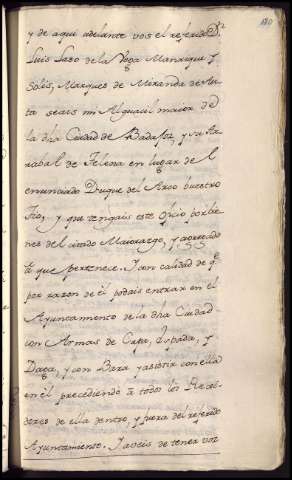 y de aqui adelante vos el referido Dn
Luis Laso de la Vega Manrique y
Solis, Marques de Miranda de Au
ta seais mi Alguacil maior de
la dha Ciudad de Badajoz, y su Ar
rabal de Telena en lugar de el
enunciado Duque del Arco vuestro
Tio, y que tengais este oficio por bie
nes del citado Maiorazgo, y agregado
à que pertenece. Y con calidad de q
por razon de èl podais entrar en el
Ayuntamiento de la dha Ciudad
con Armas de Capa, Espada, y
Daga, y con Bara y asistir con ella
en èl precediendo à todos los Regi
dores de ella dentro, y fuera del referido
Ayuntamiento. Y aveis de tener voz